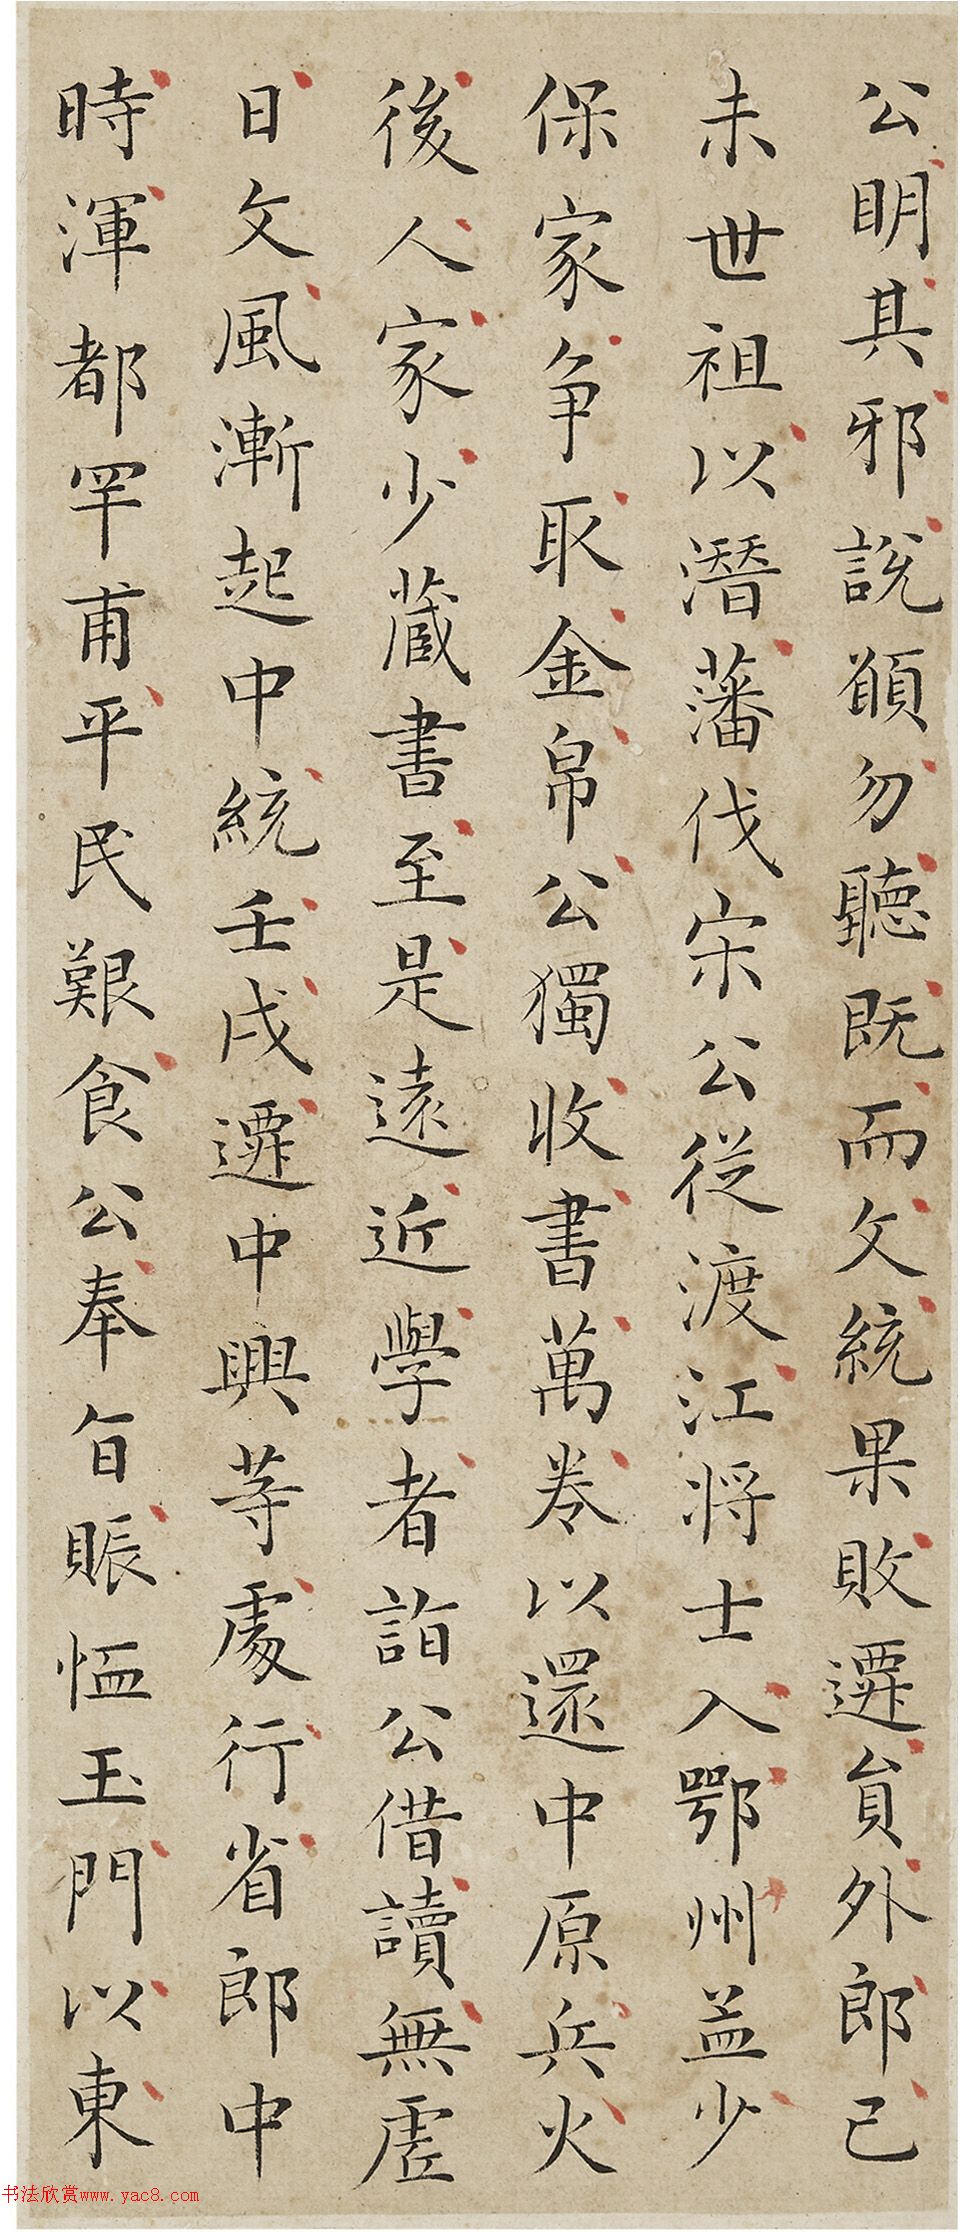 公明其邪說頋勿聽既而文統果敗遷貟外郎己
未世祖以潛藩伐宋公從渡江將士入鄂州益少
保家争取金帛公獨收書萬卷以還中原兵火
後人家少蔵書至是遠近學者詣公借讀無虛
日文風漸起中統壬戌遷中興等處行省郎中
時渾都罕甫平民艱食公奉旨賑恤玉門以東
书法欣赏www.yac8.com